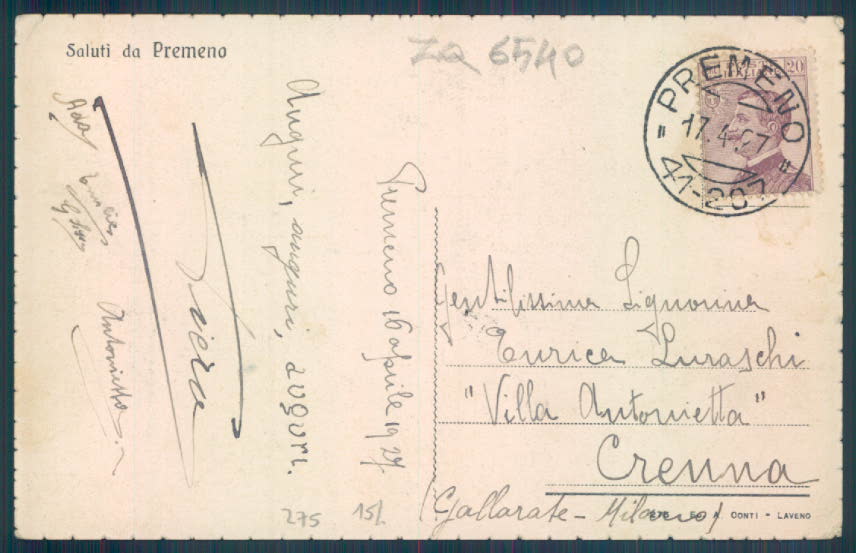 Saluti da Premeno
ZQ 6540
PREMENO
17.4.27
41-207
20
Auguri, auguri, auguri.
Premeno 16 aprile 1927
Ada
Antonietta
Gentilissima Signorina
Enrica Luraschi
"Villa Antonietta"
Crenna
(Gallarate - Milano)
275
15/
A. CONTI - LAVENO